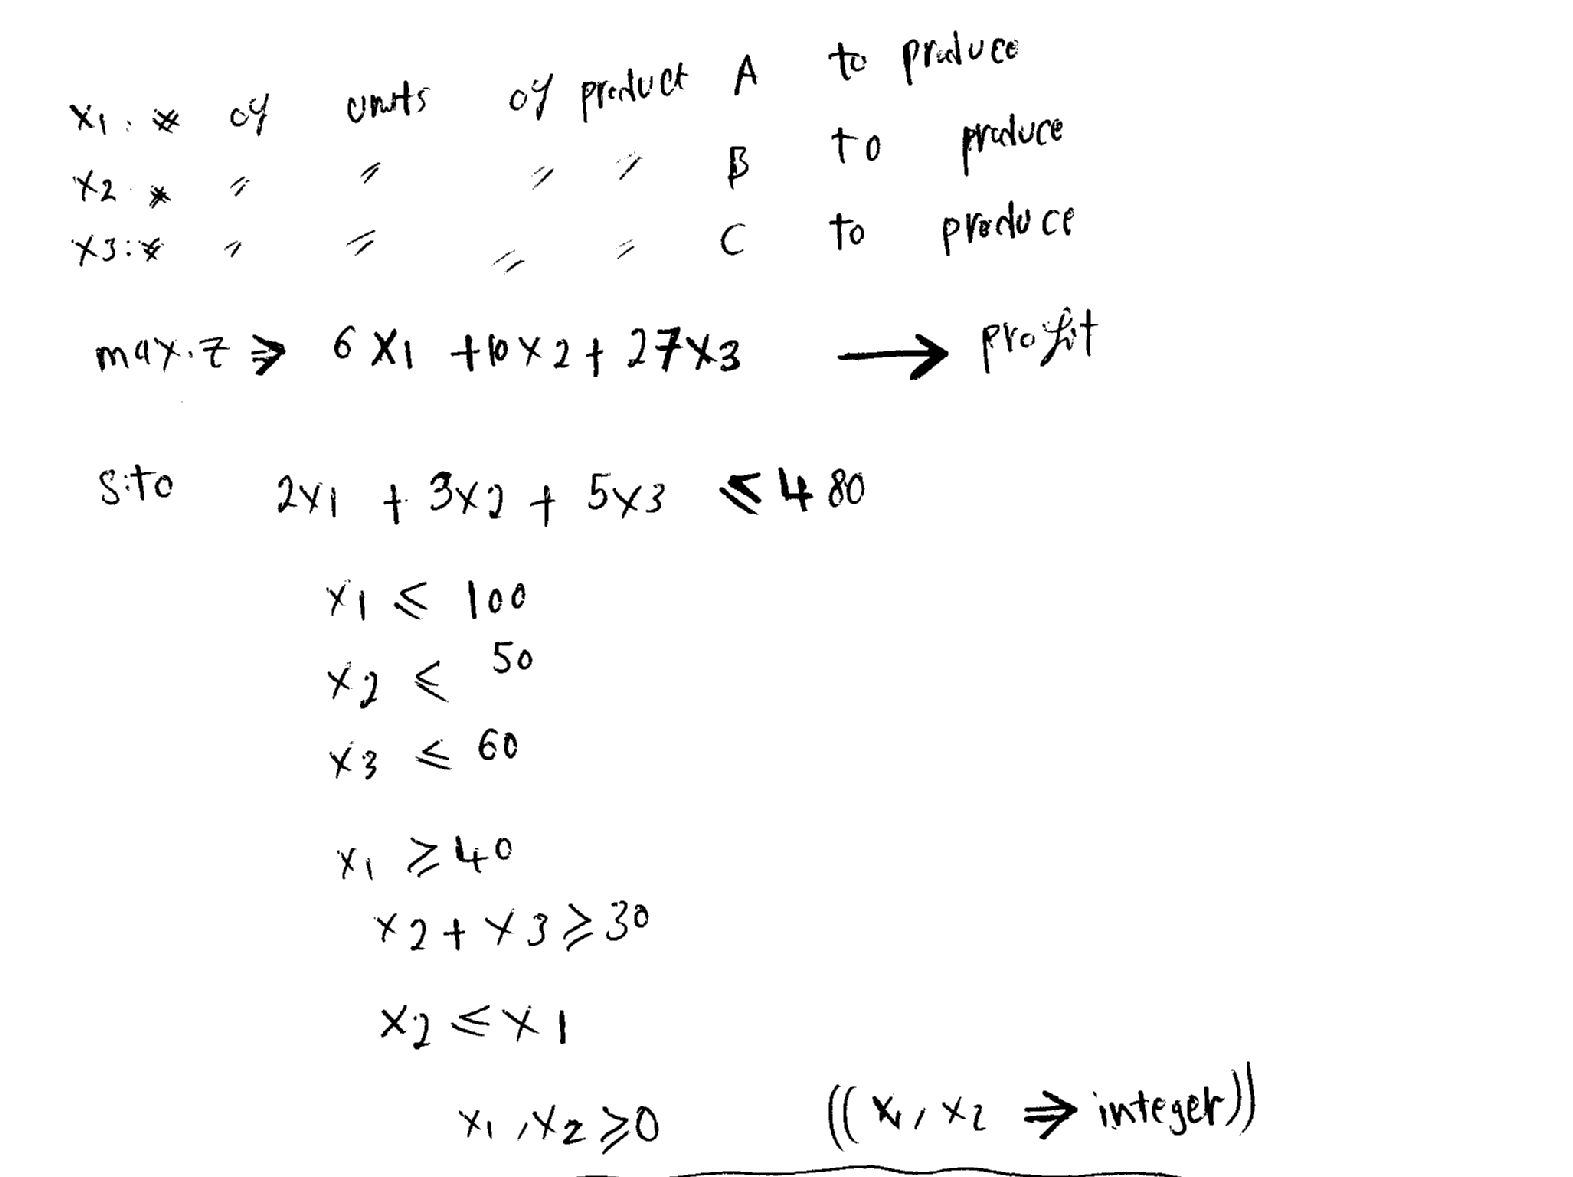 x1: * of units of product A to produce
x2 * " " " " B to produce
x3: * " " " " C to produce
max. z ⇒ 6x1 + 10x2 + 27x3 → profit
s.to 2x1 + 3x2 + 5x3 ≤ 480
x1 ≤ 100
x2 ≤ 50
x3 ≤ 60
x1 ≥ 40
x2 + x3 ≥ 30
x2 ≤ x1
x1, x2 ≥ 0 ((x1, x2 ⇒ integer))